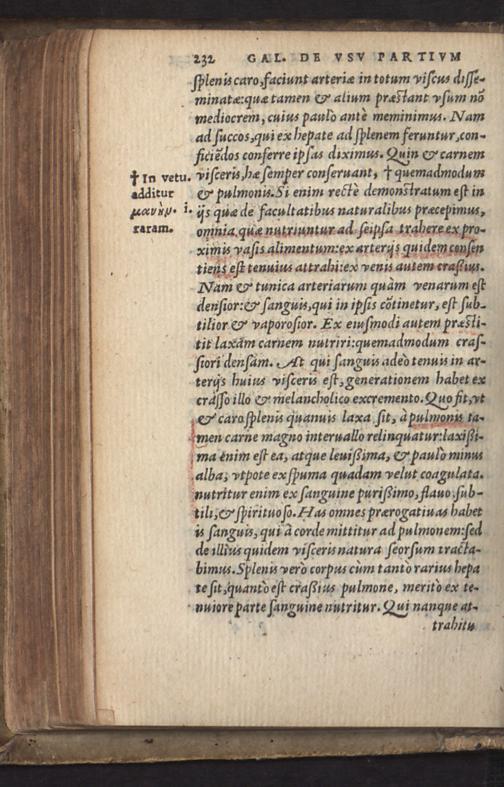 232 GAL. DE VSV PARTIVM
splenis caro, faciunt arteriæ in totum viscus disse-
minatæ: quæ tamen & alium præstant vsum nō
mediocrem, cuius paulò antè meminimus. Nam
ad succos, qui ex hepate ad splenem feruntur, con-
ficiēdos conferre ipsas diximus. Quin & carnem
visceris, hæ semper conseruant, † quemadmodum
& pulmonis. Si enim rectè demonstratum est in
ijs quæ de facultatibus naturalibus præcepimus,
omnia quæ nutriuntur ad seipsa trahere ex pro-
ximis vasis alimentum: ex arterijs quidem consen
tiens est tenuius attrahi: ex venis autem crassius.
Nam & tunica arteriarum quàm venarum est
densior: & sanguis, qui in ipsis cōtinetur, est sub-
tilior & vaporosior. Ex eiusmodi autem præsti-
tit laxam carnem nutriri: quemadmodum cras-
siori densam. At qui sanguis adeò tenuis in ar-
terijs huius visceris est, generationem habet ex
crasso illo & melancholico excremento. Quo fit, vt
& caro splenis quanuis laxa sit, à pulmonis ta-
men carne magno interuallo relinquatur: laxißi-
ma enim est ea, atque leuißima, & paulò minus
alba, vtpote ex spuma quadam velut coagulata.
nutritur enim ex sanguine purißimo, flauo, sub-
tili, & spirituoso. Has omnes prærogatiuas habet
is sanguis, qui à corde mittitur ad pulmonem: sed
de illius quidem visceris natura seorsum tracta-
bimus. Splenis verò corpus cùm tantò rarius hepa
te sit, quantò est craßius pulmone, meritò ex te-
nuiore parte sanguine nutritur. Qui nanque at-
trahitu
† In vetu.
additur
μανὴν. i.
raram.